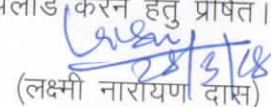 करने हेतु प्रेषित।
28/3/18
(लक्ष्मी नारायण दास)